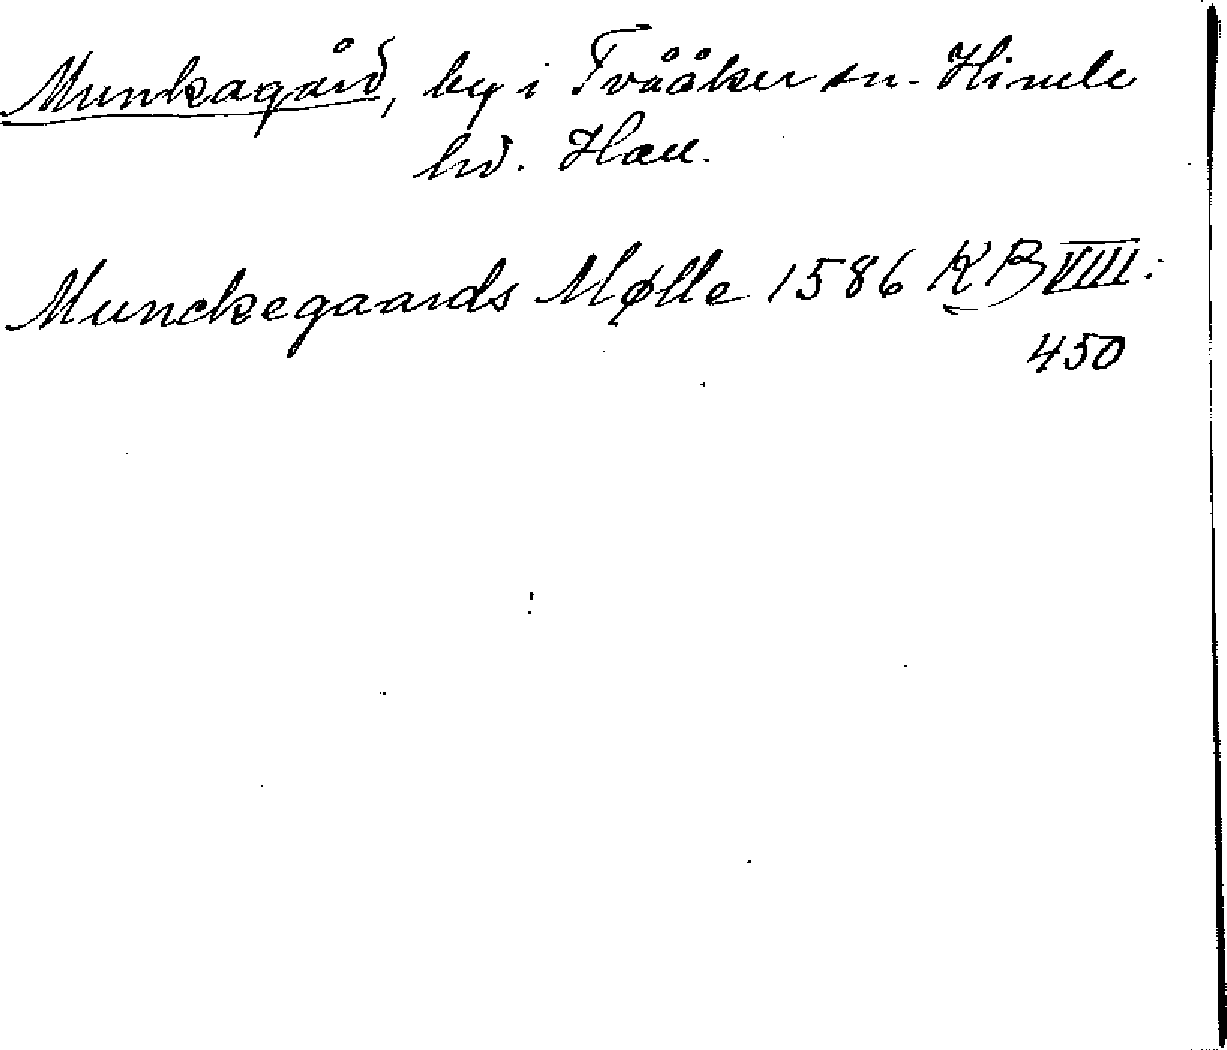 Munkagård, by i Tvååker sn. Himle
hd. Hall.
Munckegaards Mølle 1586 KB VIII:
450